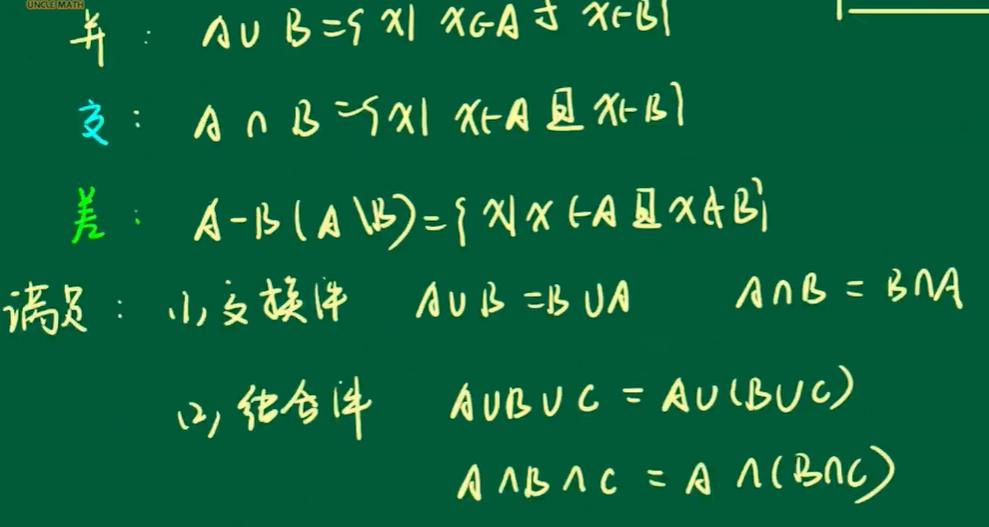 UNCLE MATH
并: A∪B={x| x∈A 或 x∈B}
交: A∩B={x| x∈A 且 x∈B}
差: A-B(A\B)={x|x∈A 且 x∉B}
满足: (1) 交换律 A∪B=B∪A A∩B=B∩A
(2) 结合律 A∪B∪C=A∪(B∪C)
A∩B∩C=A∩(B∩C)